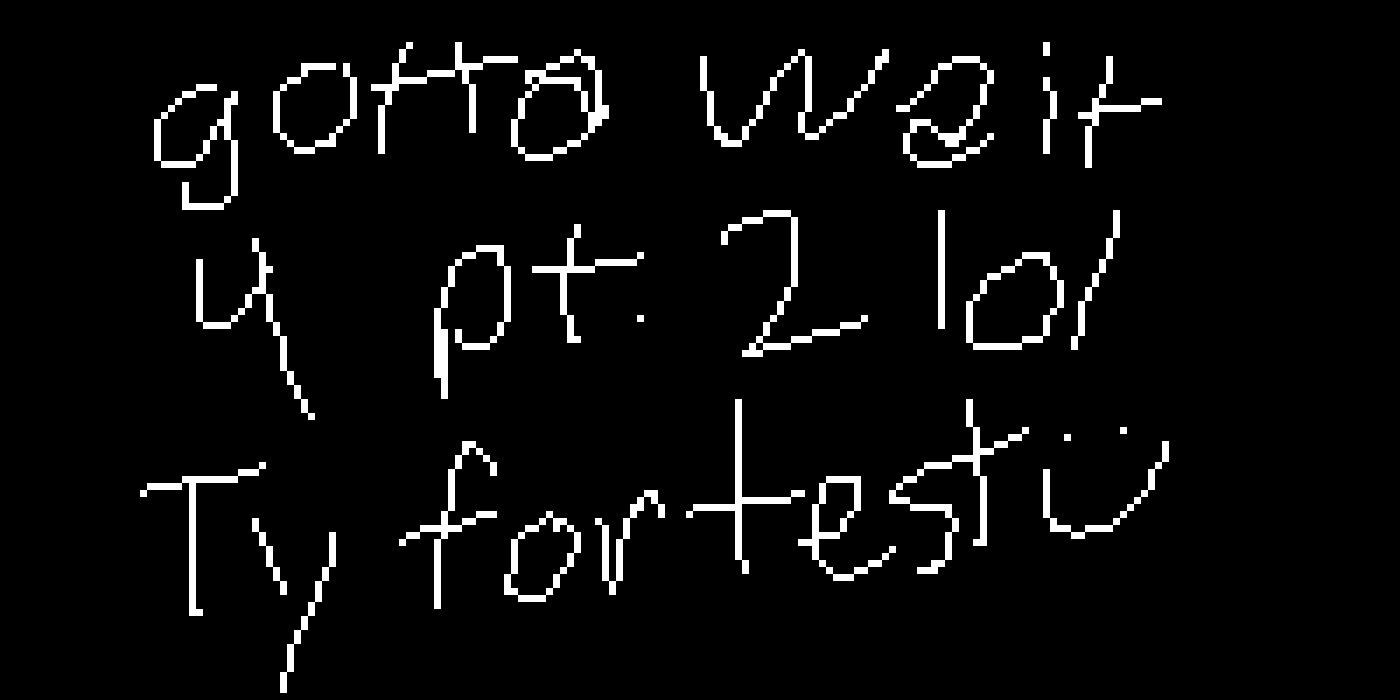 gotta wait
4 pt. 2 lol
Ty for test ü